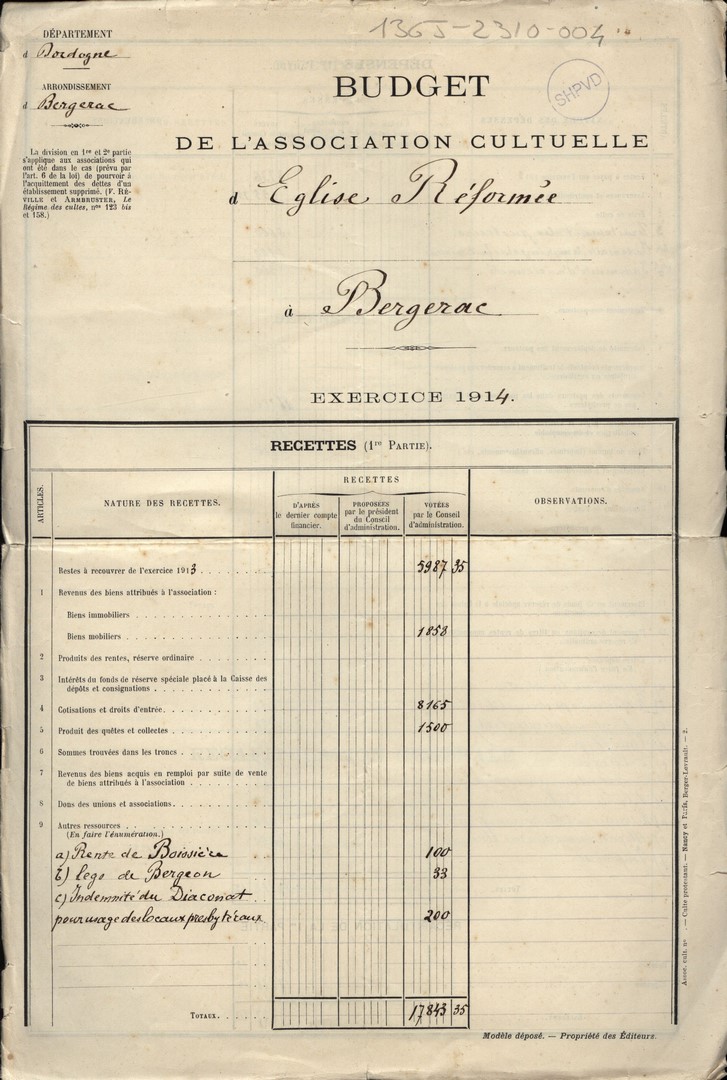 136J-2310-004
DÉPARTEMENT
d Dordogne
ARRONDISSEMENT
d Bergerac
La division en 1re et 2e partie
s'applique aux associations qui
ont été dans le cas (prévu par
l'art. 6 de la loi) de pourvoir à
l'acquittement des dettes d'un
établissement supprimé. (V. RÉ-
VILLE et ARMBRUSTER, Le
Régime des cultes, nos 123 bis
et 158.)
BUDGET
SHPVD
DE L'ASSOCIATION CULTUELLE
d Eglise Réformée
à Bergerac
EXERCICE 1914.
RECETTES (1re PARTIE).
ARTICLES.
NATURE DES RECETTES.
RECETTES
D'APRÈS
le dernier compte
financier.
PROPOSÉES
par le président
du Conseil
d'administration.
VOTÉES
par le Conseil
d'administration.
OBSERVATIONS.
Restes à recouvrer de l'exercice 1913 5987 35
1 Revenus des biens attribués à l'association :
Biens immobiliers
Biens mobiliers 1858
2 Produits des rentes, réserve ordinaire
3 Intérêts du fonds de réserve spéciale placé à la Caisse des
dépôts et consignations
4 Cotisations et droits d'entrée 8165
5 Produit des quêtes et collectes 1500
6 Sommes trouvées dans les troncs
7 Revenus des biens acquis en remploi par suite de vente
de biens attribués à l'association
8 Dons des unions et associations
9 Autres ressources
(En faire l'énumération.)
a) Rente de Boissière 100
b) legs de Bergeon 33
c) Indemnité du Diaconat
pour usage des locaux presbytéraux 200
TOTAUX 17843 35
Modèle déposé. — Propriété des Éditeurs.
Assoc. cult. no — Culte protestant. — Nancy et Paris, Berger-Levrault. — 2.